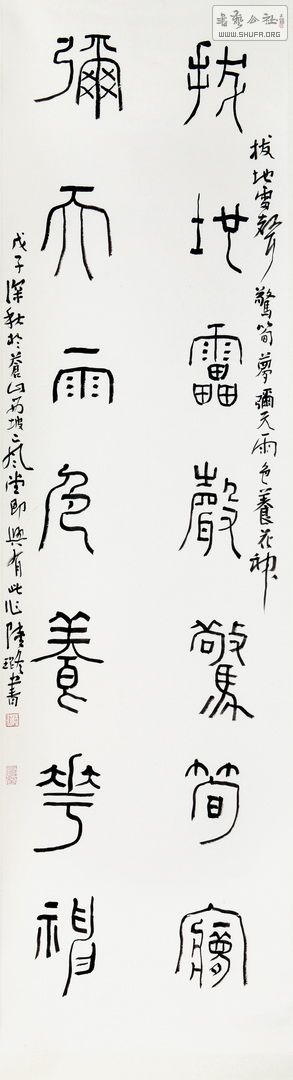 書藝公社
WWW.SHUFA.ORG
拔地雷聲驚筍夢彌天雨色養花神
拔地靁聲驚筍夢
彌天雨色養華神
戊子深秋於蒼山西坡風堂即興有此陸書